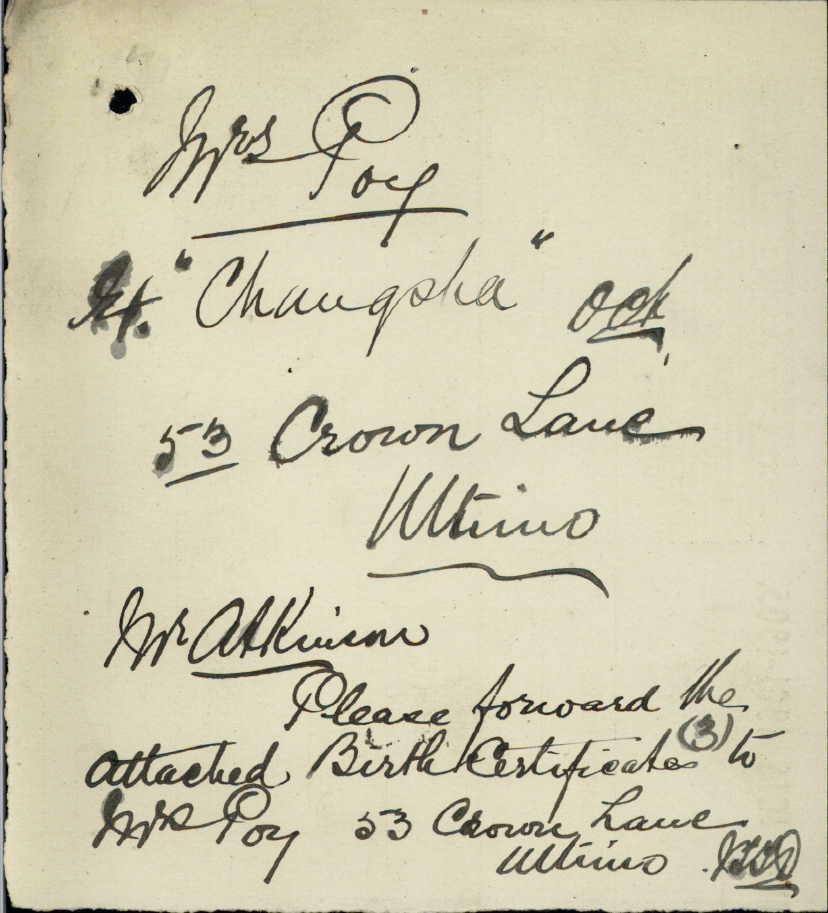 Mrs Poy
"Changsha" Oct
53 Crown Lane
Ultimo
Mr Atkinson
Please forward the
attached Birth Certificates (3) to
Mrs Poy 53 Crown Lane
Ultimo